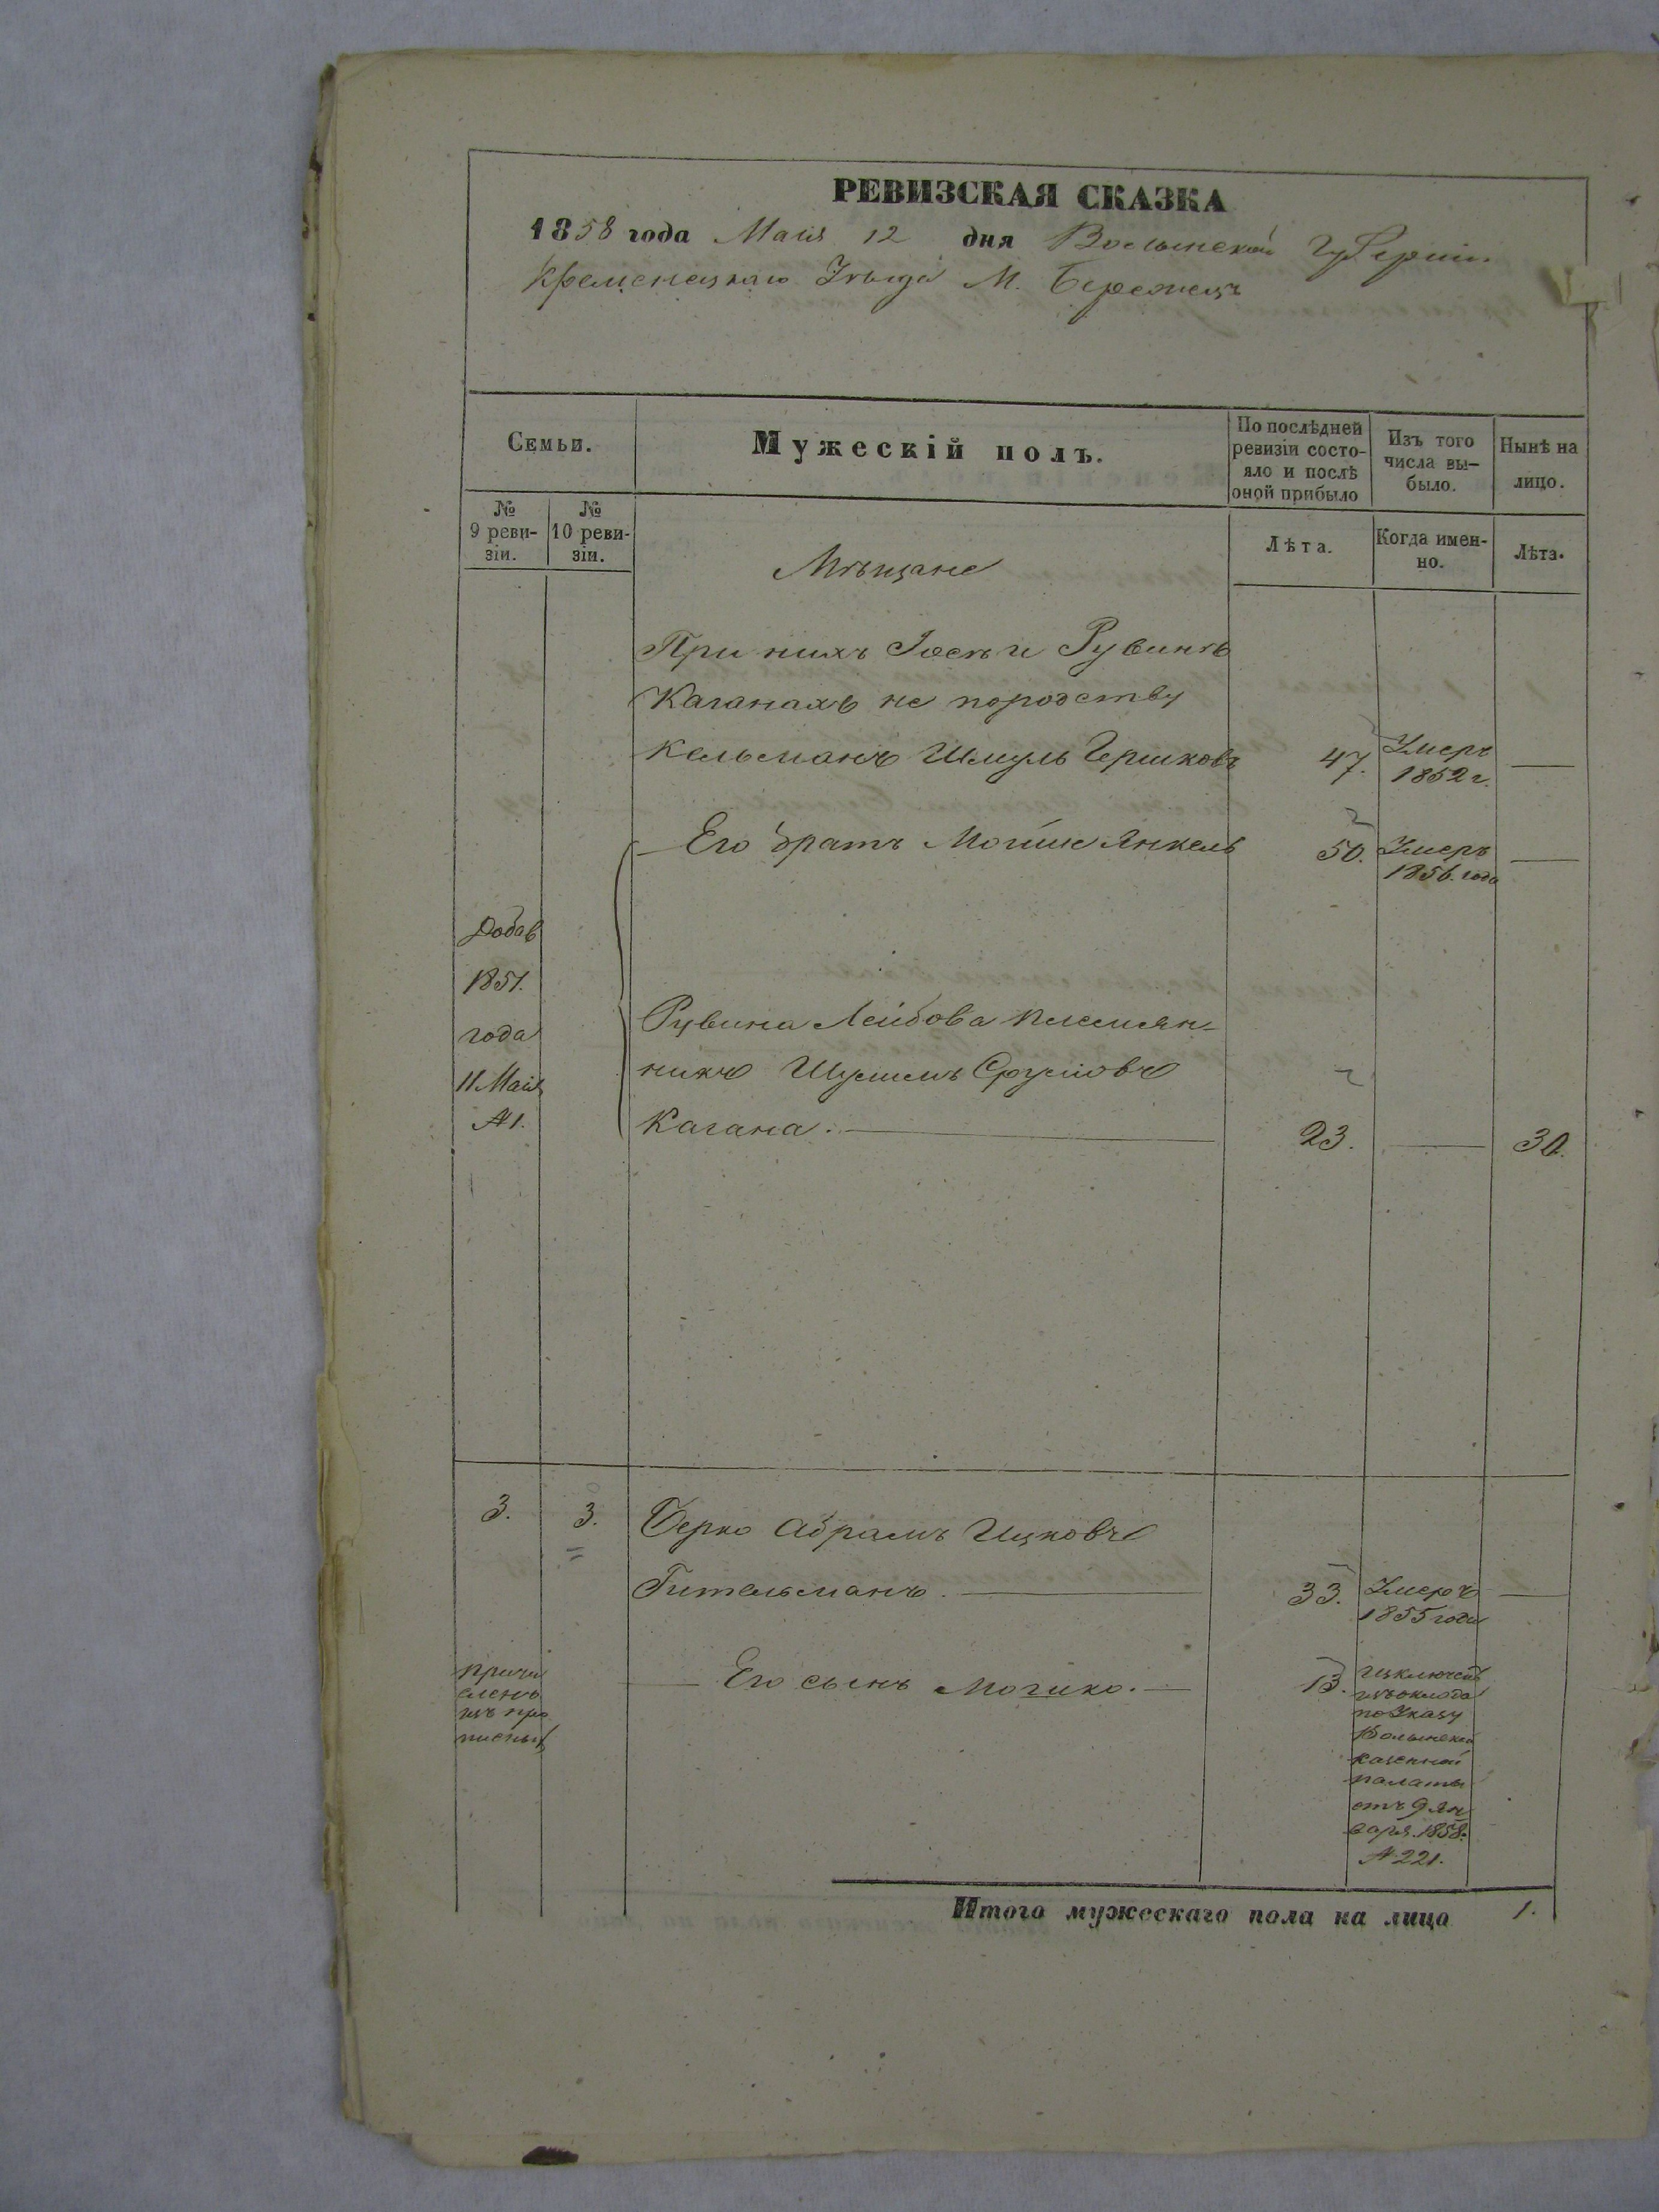 РЕВИЗСКАЯ СКАЗКА
1858 года Маія 12 дня Волынской Губерніи
Кременецкаго Уѣзда М. Бережецъ
Семьи.
Мужескій полъ.
По послѣдней
ревизіи состо-
яло и послѣ
оной прибыло
Изъ того
числа вы-
было.
Нынѣ на
лицо.
№
9 реви-
зіи.
№
10 реви-
зіи.
Мѣщане
Лѣта.
Когда имен-
но.
Лѣта.
При нихъ Іосъ и Рувинъ
Каганахъ не породству
Кельманъ Шмуль Гершковъ 47. Умеръ
1852 г.
Его братъ Мойше Янкель 50. Умеръ
1856. года
Добав
1851.
года
11 Маія
№ 1.
Рувина Лейбова племян-
никъ Шулимъ Срулювъ
Кагана. 23. 30.
3. 3. Берко Абрамъ Ицковъ
Гительманъ. 33. Умеръ
1855 года
причи
сленъ
изъ про
писных
Его сынъ Мошко. 13.
Изключенъ
изъ оклада
по Указу
Волынской
казенной
палаты
отъ 9 Ян
варя. 1858.
№ 221.
Итого мужескаго пола на лицо 1.